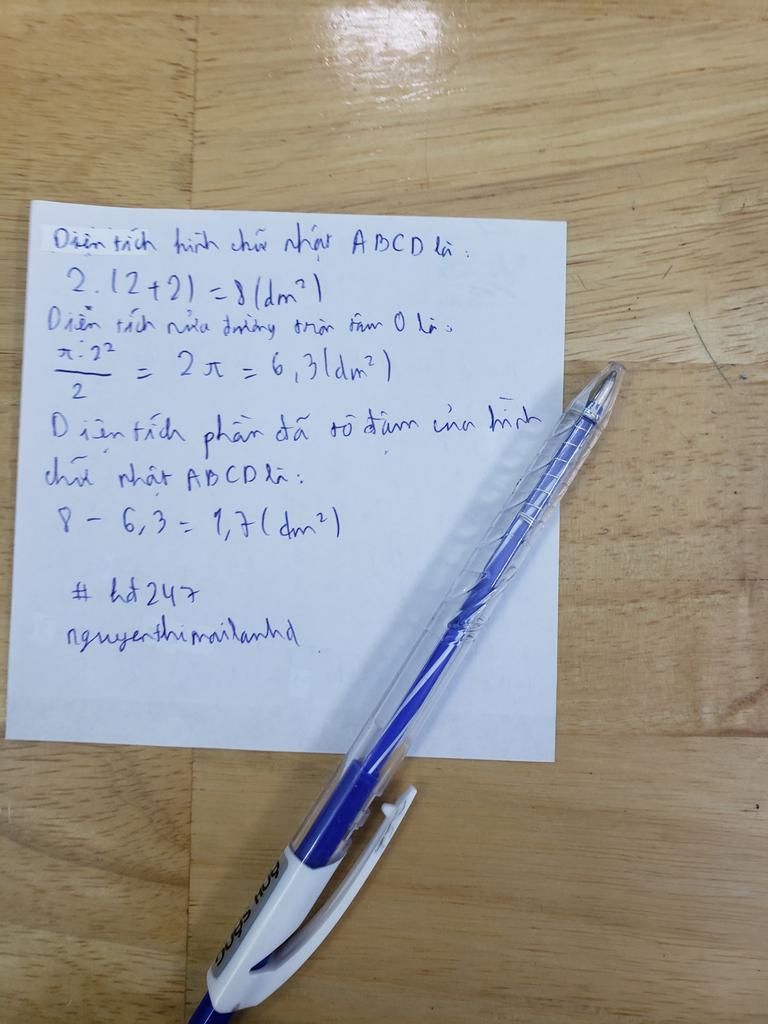 Diện tích hình chữ nhật ABCD là:
2.(2+2) = 8(dm²)
Diện tích nửa đường tròn tâm O là:
π.2²/2 = 2π = 6,3(dm²)
Diện tích phần đã tô đậm của hình
chữ nhật ABCD là:
8 - 6,3 = 1,7(dm²)
# hd247
nguyenthimailanhd